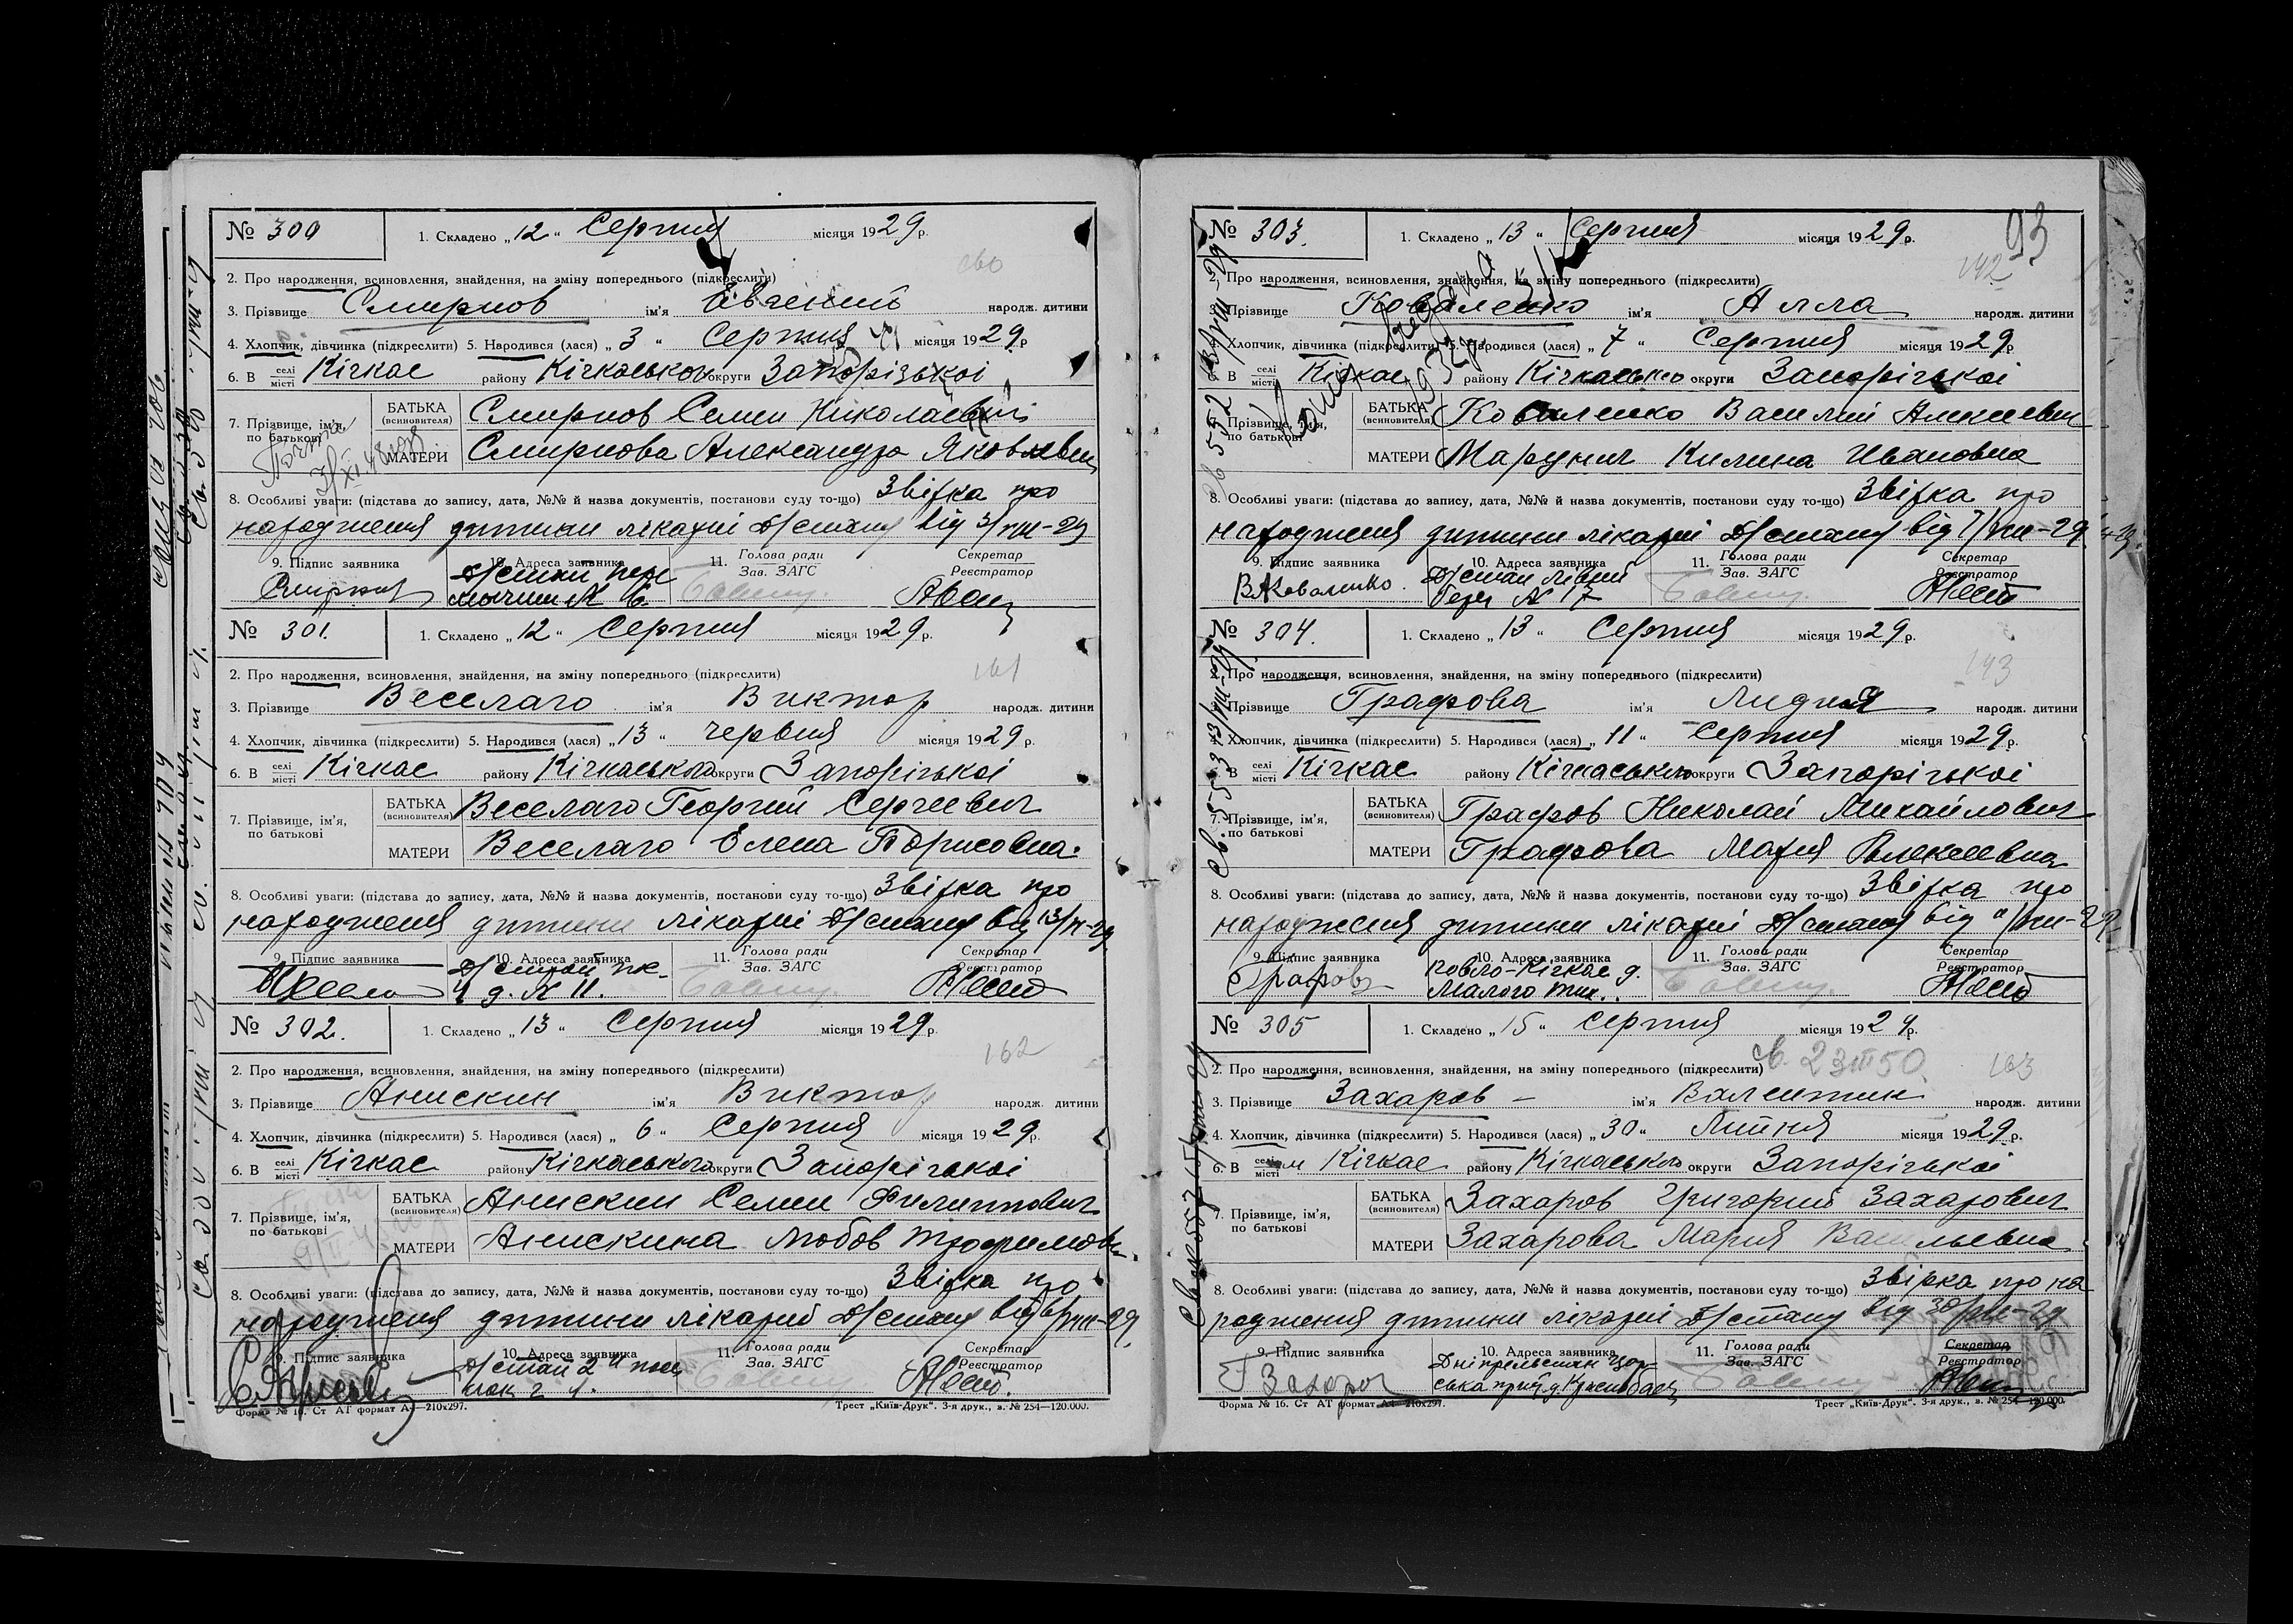 № 300
1. Складено „12“ Серпня місяця 1929 р.
2. Про народження, всиновлення, знайдення, на зміну попереднього (підкреслити)
3. Прізвище Смирнов ім'я Евгений народж. дитини
4. Хлопчик, дівчинка (підкреслити) 5. Народився (лася) „3“ Серпня місяця 1929 р
6. В селі місті Кічкас району Кічкаського округи Запорізької
7. Прізвище, ім'я, по батькові
БАТЬКА (всиновителя) Смирнов Семен Николаевич
МАТЕРИ Смирнова Александра Яковлевн
8. Особливі уваги: (підстава до запису, дата, №№ й назва документів, постанови суду то-що) Звістка про
народження дитини лікарні Д/стану від 3/VIII-29
9. Підпис заявника 10. Адреса заявника 11. Голова ради Зав. ЗАГС Секретар Реєстратор
№ 301.
1. Складено „12“ Серпня місяця 1929 р.
161
2. Про народження, всиновлення, знайдення, на зміну попереднього (підкреслити)
3. Прізвище Веселаго ім'я Виктор народж. дитини
4. Хлопчик, дівчинка (підкреслити) 5. Народився (лася) „13“ червня місяця 1929 р.
6. В селі місті Кічкас району Кічкаського округи Запорізької
7. Прізвище, ім'я, по батькові
БАТЬКА (всиновителя) Веселаго Георгий Сергеевич
МАТЕРИ Веселаго Елена Борисовна.
8. Особливі уваги: (підстава до запису, дата, №№ й назва документів, постанови суду то-що) Звістка про
народження дитини лікарні Д/стану від 13/VI-29
9. Підпис заявника 10. Адреса заявника 11. Голова ради Зав. ЗАГС Секретар Реєстратор
4 д. № 11.
№ 302.
1. Складено „13“ Серпня місяця 1929 р.
162
2. Про народження, всиновлення, знайдення, на зміну попереднього (підкреслити)
3. Прізвище Анискин ім'я Виктор народж. дитини
4. Хлопчик, дівчинка (підкреслити) 5. Народився (лася) „6“ Серпня місяця 1929 р.
6. В селі місті Кічкас району Кічкаського округи Запорізької
7. Прізвище, ім'я, по батькові
БАТЬКА (всиновителя) Анискин Семен Филиппович
МАТЕРИ Анискина Любов Трофимовн.
8. Особливі уваги: (підстава до запису, дата, №№ й назва документів, постанови суду то-що) Звістка про
народження дитини лікарні Д/стану від 6/VIII-29.
9. Підпис заявника 10. Адреса заявника 11. Голова ради Зав. ЗАГС Секретар Реєстратор
Форма № 16. Ст АТ формат А4—210x297. Трест „Київ-Друк“. 3-я друк., з. № 254—120.000.
93
№ 303.
1. Складено „13“ Серпня місяця 1929 р.
142
2. Про народження, всиновлення, знайдення, на зміну попереднього (підкреслити)
3. Прізвище Коваленко ім'я Алла народж. дитини
4. Хлопчик, дівчинка (підкреслити) 5. Народився (лася) „7“ Серпня місяця 1929 р
6. В селі місті Кічкас району Кічкасько округи Запорізької
7. Прізвище, ім'я, по батькові
БАТЬКА (всиновителя) Коваленко Василий Алексеевич
МАТЕРИ Марунич Килина Ивановна
8. Особливі уваги: (підстава до запису, дата, №№ й назва документів, постанови суду то-що) Звістка про
народження дитини лікарні Д/стану від 7/VIII-29.
9. Підпис заявника 10. Адреса заявника 11. Голова ради Зав. ЗАГС Секретар Реєстратор
В Коваленко. № 17
№ 304.
1. Складено „13“ Серпня місяця 1929 р.
143
2. Про народження, всиновлення, знайдення, на зміну попереднього (підкреслити)
3. Прізвище Графова ім'я Лидия народж. дитини
4. Хлопчик, дівчинка (підкреслити) 5. Народився (лася) „11“ Серпня місяця 1929 р.
6. В селі місті Кічкас району Кічкасько округи Запорізької
7. Прізвище, ім'я, по батькові
БАТЬКА (всиновителя) Графов Николай Михайлович
МАТЕРИ Графова Мария Алексеевна
8. Особливі уваги: (підстава до запису, дата, №№ й назва документів, постанови суду то-що) Звістка про
народження дитини лікарні Д/стану від 11/VIII-29
9. Підпис заявника 10. Адреса заявника 11. Голова ради Зав. ЗАГС Секретар Реєстратор
Графов
№ 305
1. Складено „15“ Серпня місяця 1929 р.
св. 23 III 50. 163
2. Про народження, всиновлення, знайдення, на зміну попереднього (підкреслити)
3. Прізвище Захаров - ім'я Валентин народж. дитини
4. Хлопчик, дівчинка (підкреслити) 5. Народився (лася) „30“ Липня місяця 1929 р.
6. В селі місті Кічкас району Кічкасько округи Запорізької
7. Прізвище, ім'я, по батькові
БАТЬКА (всиновителя) Захаров Григорий Захарович
МАТЕРИ Захарова Мария Васильевна
8. Особливі уваги: (підстава до запису, дата, №№ й назва документів, постанови суду то-що) Звістка про на
родження дитини лікарні Д/стану від 30/VII-29
9. Підпис заявника 10. Адреса заявника 11. Голова ради Зав. ЗАГС Секретар Реєстратор
Г Захаров
Форма № 16. Ст АТ формат А4—210x297. Трест „Київ-Друк“. 3-я друк., з. № 254—120.000.